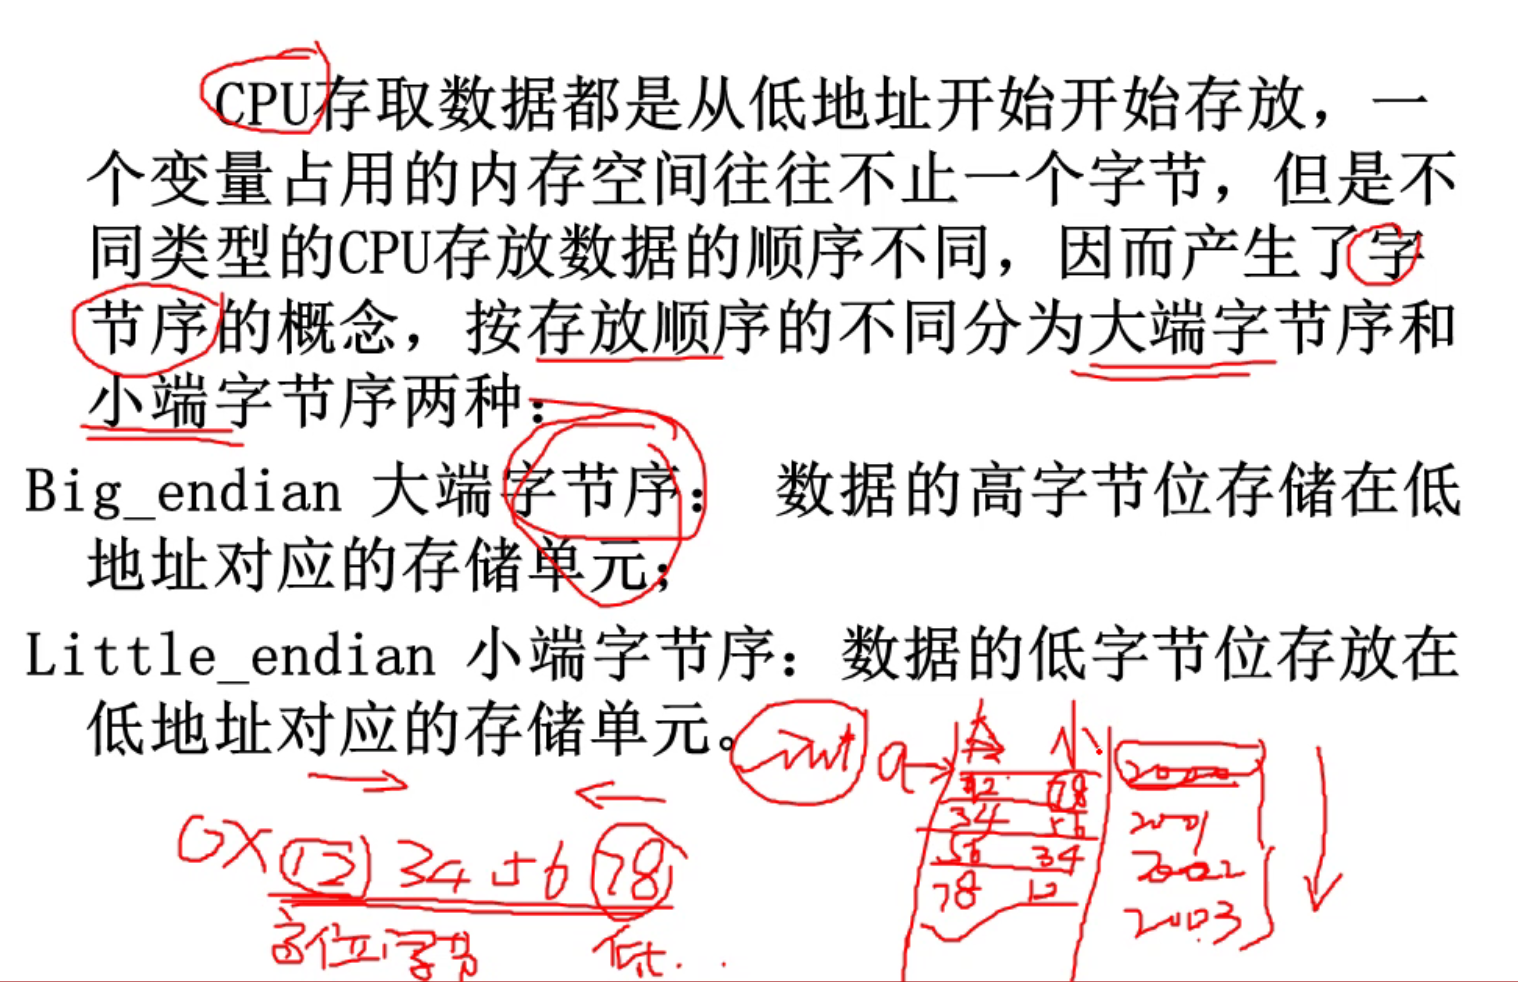 CPU存取数据都是从低地址开始开始存放，一
个变量占用的内存空间往往不止一个字节，但是不
同类型的CPU存放数据的顺序不同，因而产生了字
节序的概念，按存放顺序的不同分为大端字节序和
小端字节序两种：
Big_endian 大端字节序： 数据的高字节位存储在低
地址对应的存储单元；
Little_endian 小端字节序：数据的低字节位存放在
低地址对应的存储单元。
int a 大 小
12 78 2000
34 56 2001
0X 12 34 56 78 56 34 2002
78 12 2003
高位字节 低..